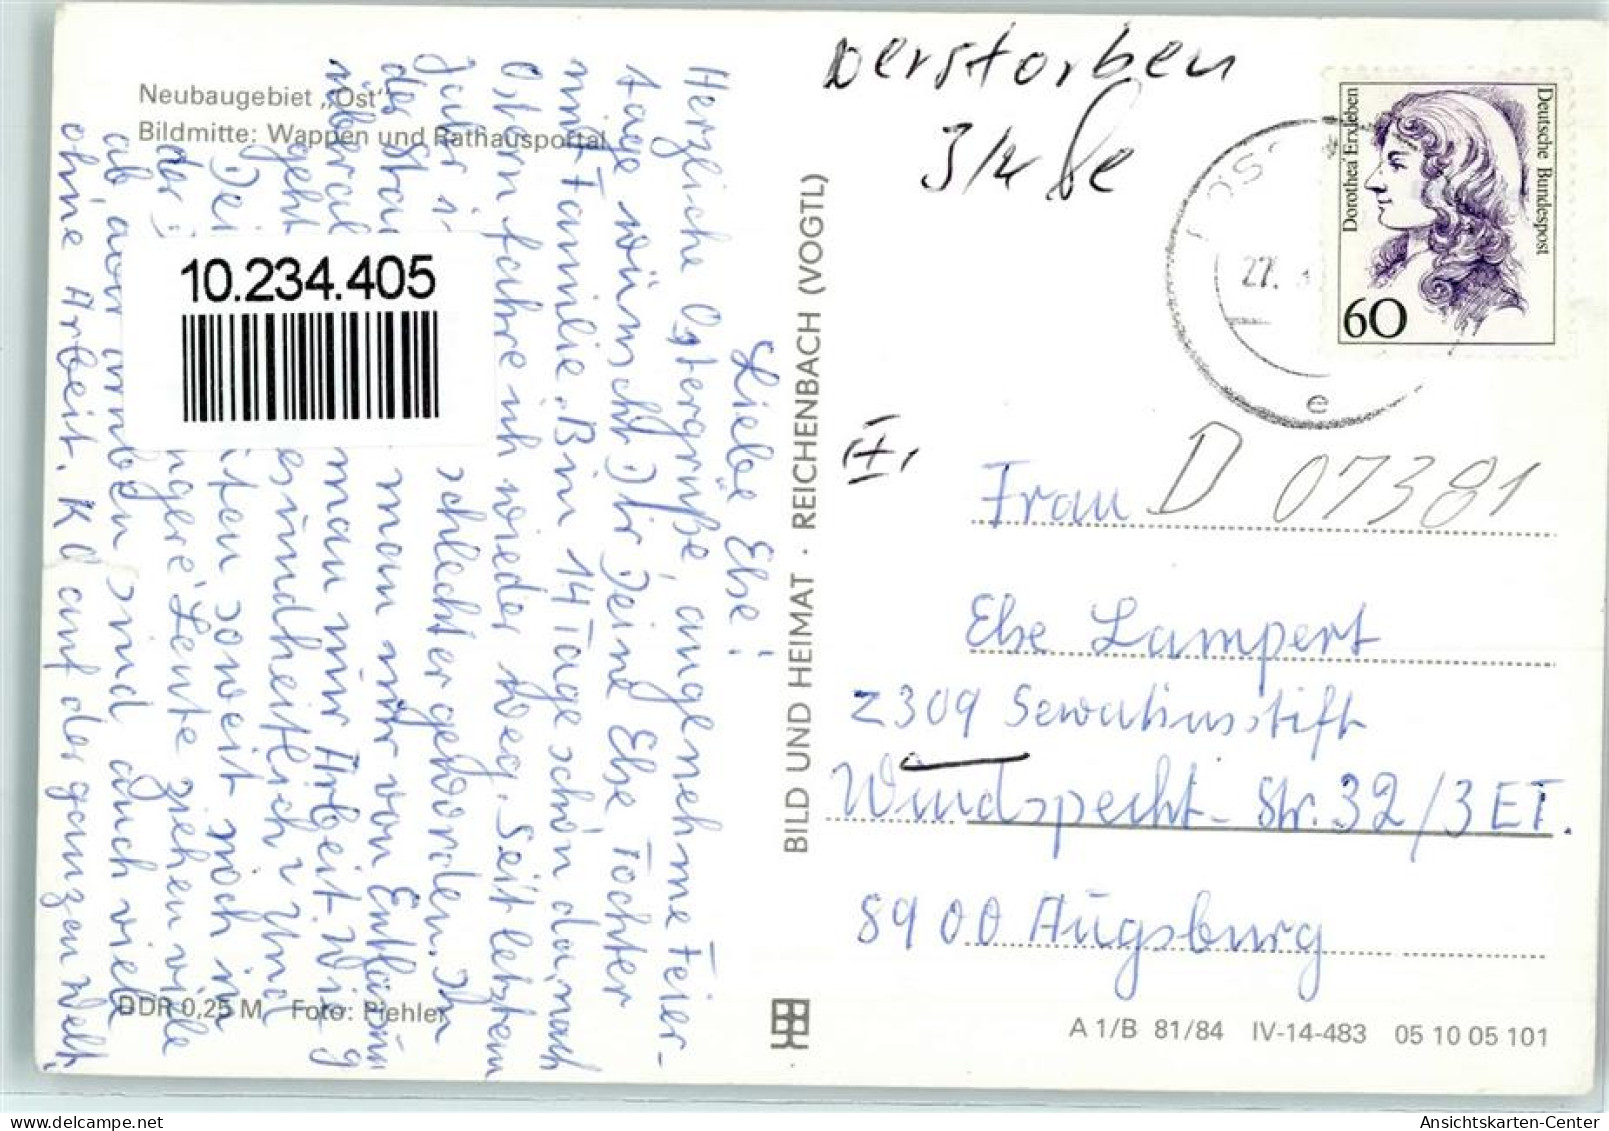 Neubaugebiet „Ost"
Bildmitte: Wappen und Rathausportal
Liebe Else!
Herzliche Ostergrüße, angenehme Feier-
tage wünscht Dir Deine Else Tochter
mit Familie. Bin 14 Tage schon da, nach
Ostern fahre ich wieder weg. Seit letztem
Jahr i schlechter geworden. In
der Sta man nur von Entlassun
überal man nur Arbeit. Wie
geht esundheitlich? Und
Dei iten soweit noch in
der ngere Leute ziehen viele
ab, aber sind auch viele
ohne Arbeit. K auf der ganzen Welt.
10.234.405
DDR 0,25 M Foto: Piehler
BILD UND HEIMAT · REICHENBACH (VOGTL)
verstorben
3/4
Deutsche Bundespost
Dorothea Erxleben
60
27.
e
II,
D 07381
Frau
Else Lampert
Z309 Servatiusstift
Windspecht- Str. 32/3 ET.
8900 Augsburg
A 1/B 81/84 IV-14-483 05 10 05 101
Ansichtskarten-Center